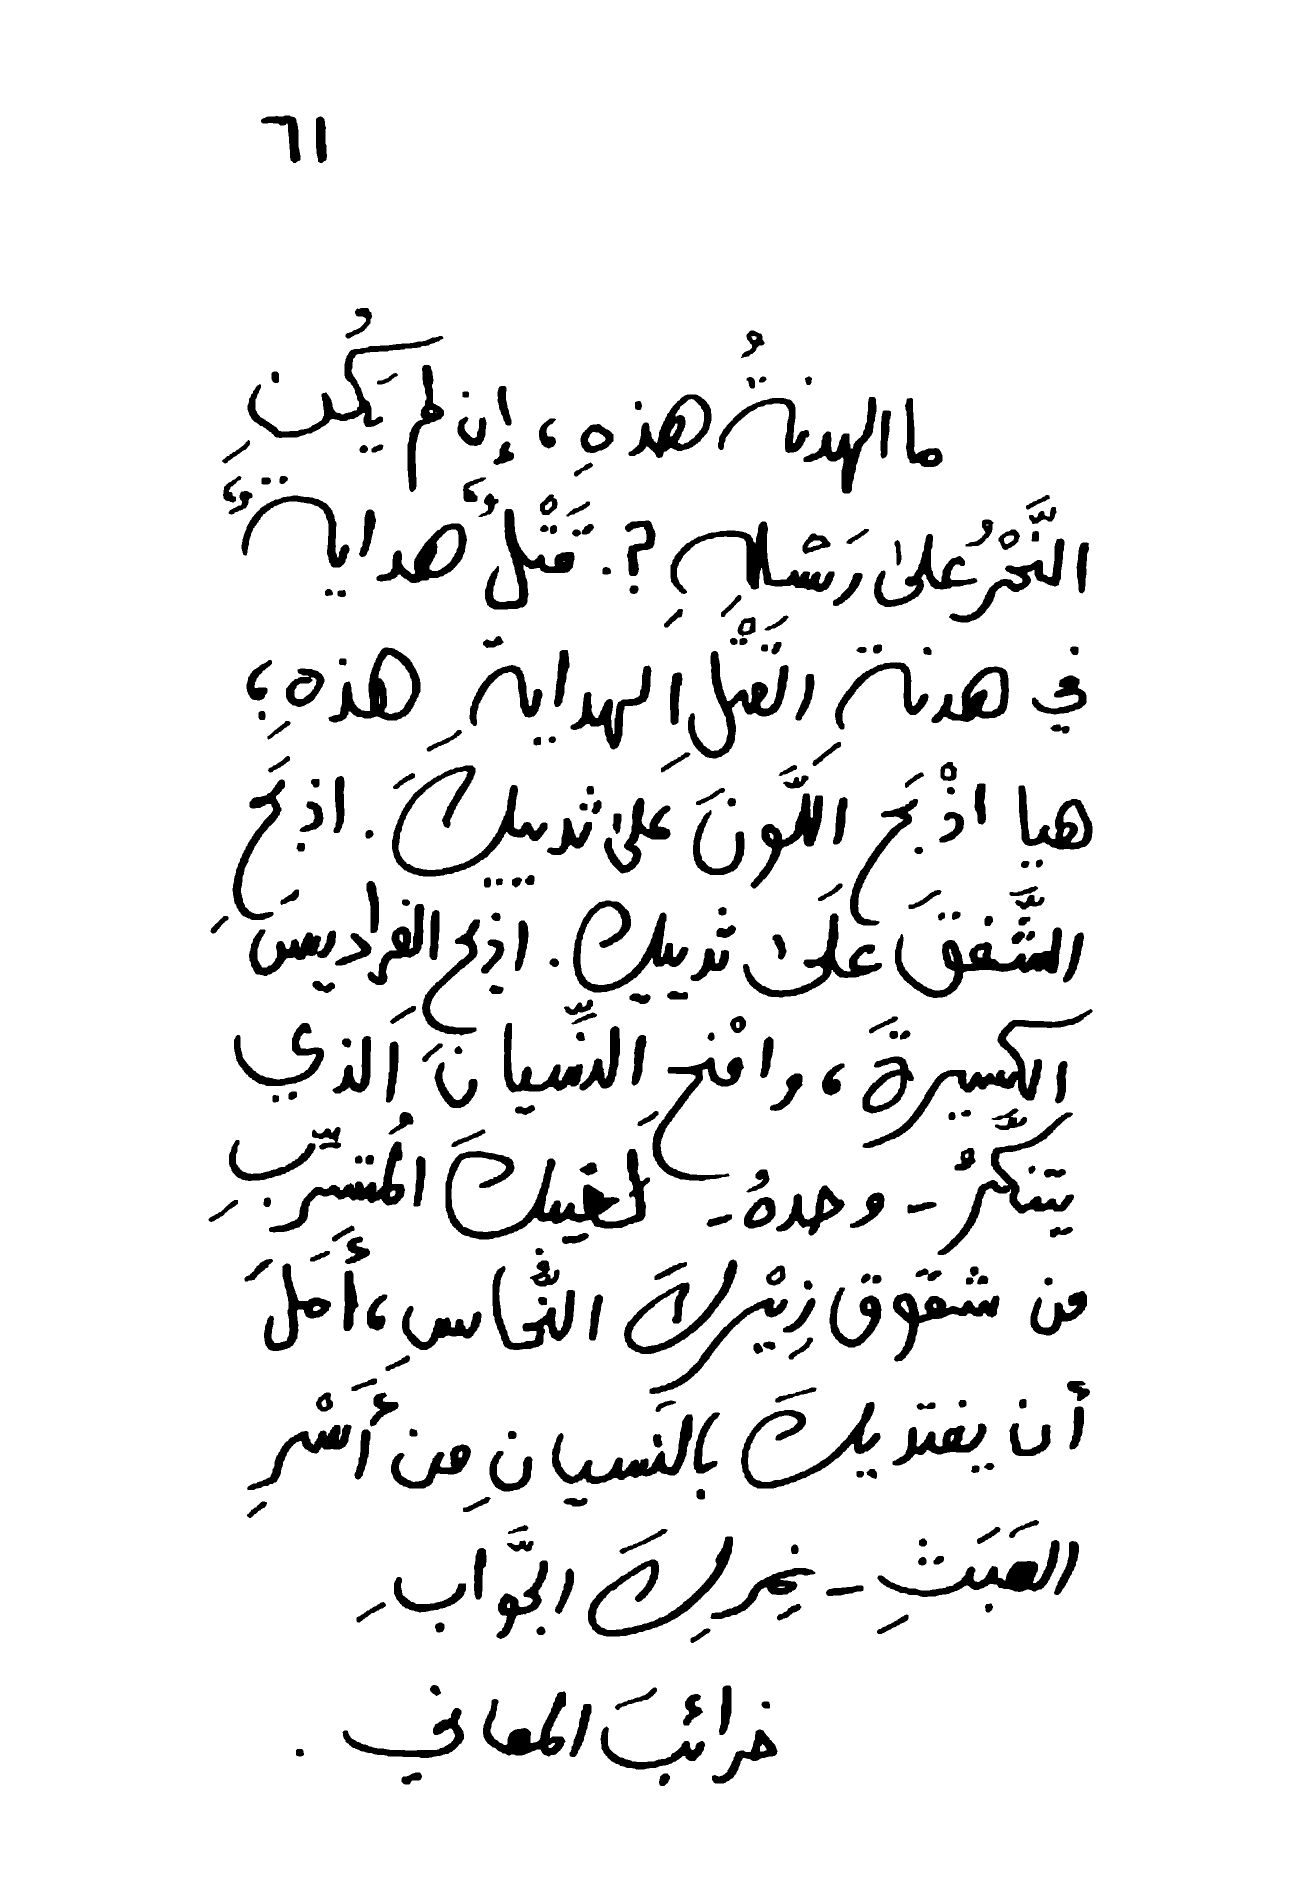 ٦١
ما الهدنةُ هذهِ، إن لم يَكُنِ
النَّحْرُ على رَسْلِهِ ؟. قَتْلٌ هدايةٌ،
في هدنة القَتْلِ الهدايةِ هذهِ؛
هيا اذْبَحِ اللَّونَ على ثدييكَ. اذبحِ
الشَّفقَ علَى ثدييك. اذبح الفراديسَ
الكسيرةَ، وافْتحِ النِّسيانَ الذي
يتنكَّرُ - وحدهُ - لغيبكَ المُتسرِّبِ
من شقوق زِئْبركَ النُّحاسِ، أَمَلَ
أن يفتديكَ بالنَسيانِ مِن أَسْرِ
العَبَثِ - نِمرِكَ الجوَّابِ
خرائبَ المعاني.